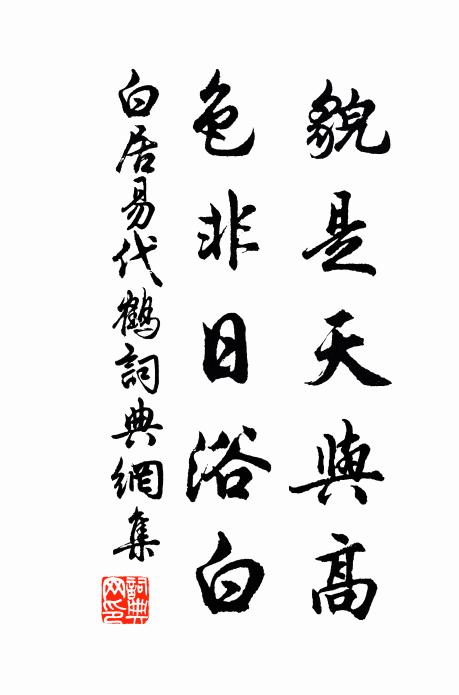 貌是天與高
色非日浴白
白居易代鶴詞典網集
詞典網印